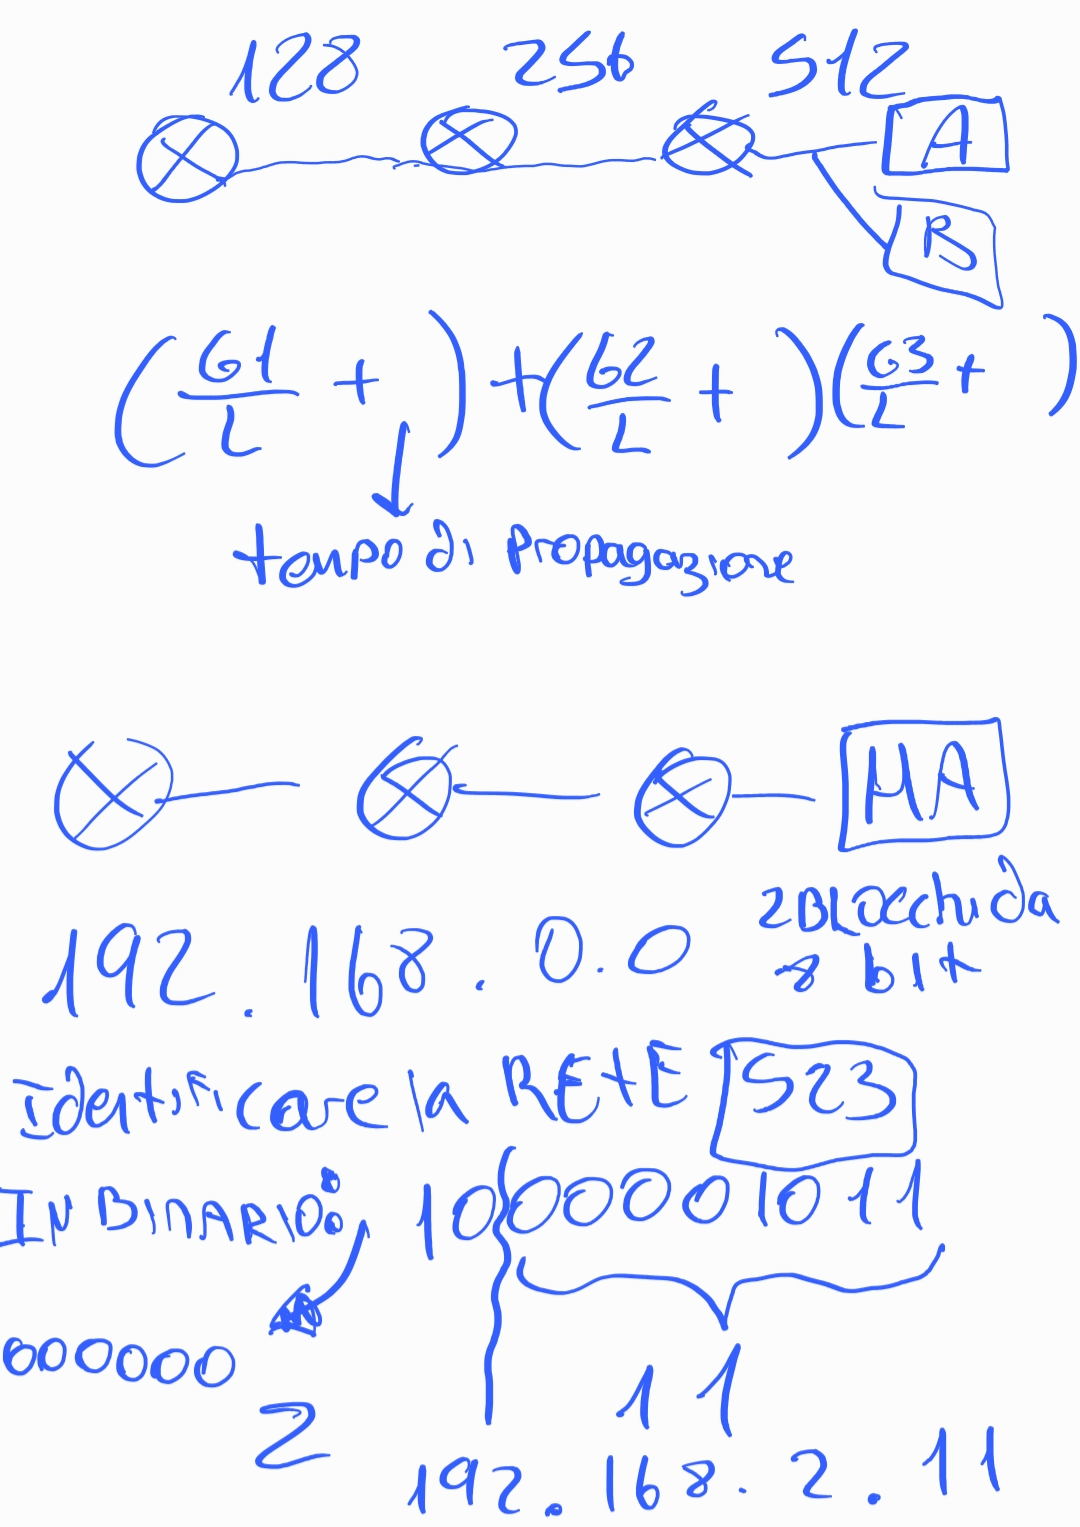 128 256 512
A
B
(61/L + ) + (62/L + ) (63/L + )
tempo di propagazione
HA
2 BLOCCHI da
8 bit
192.168.0.0
Identificare la RETE 523
IN BINARIO: 1000001011
000000
2 11
192.168.2.11